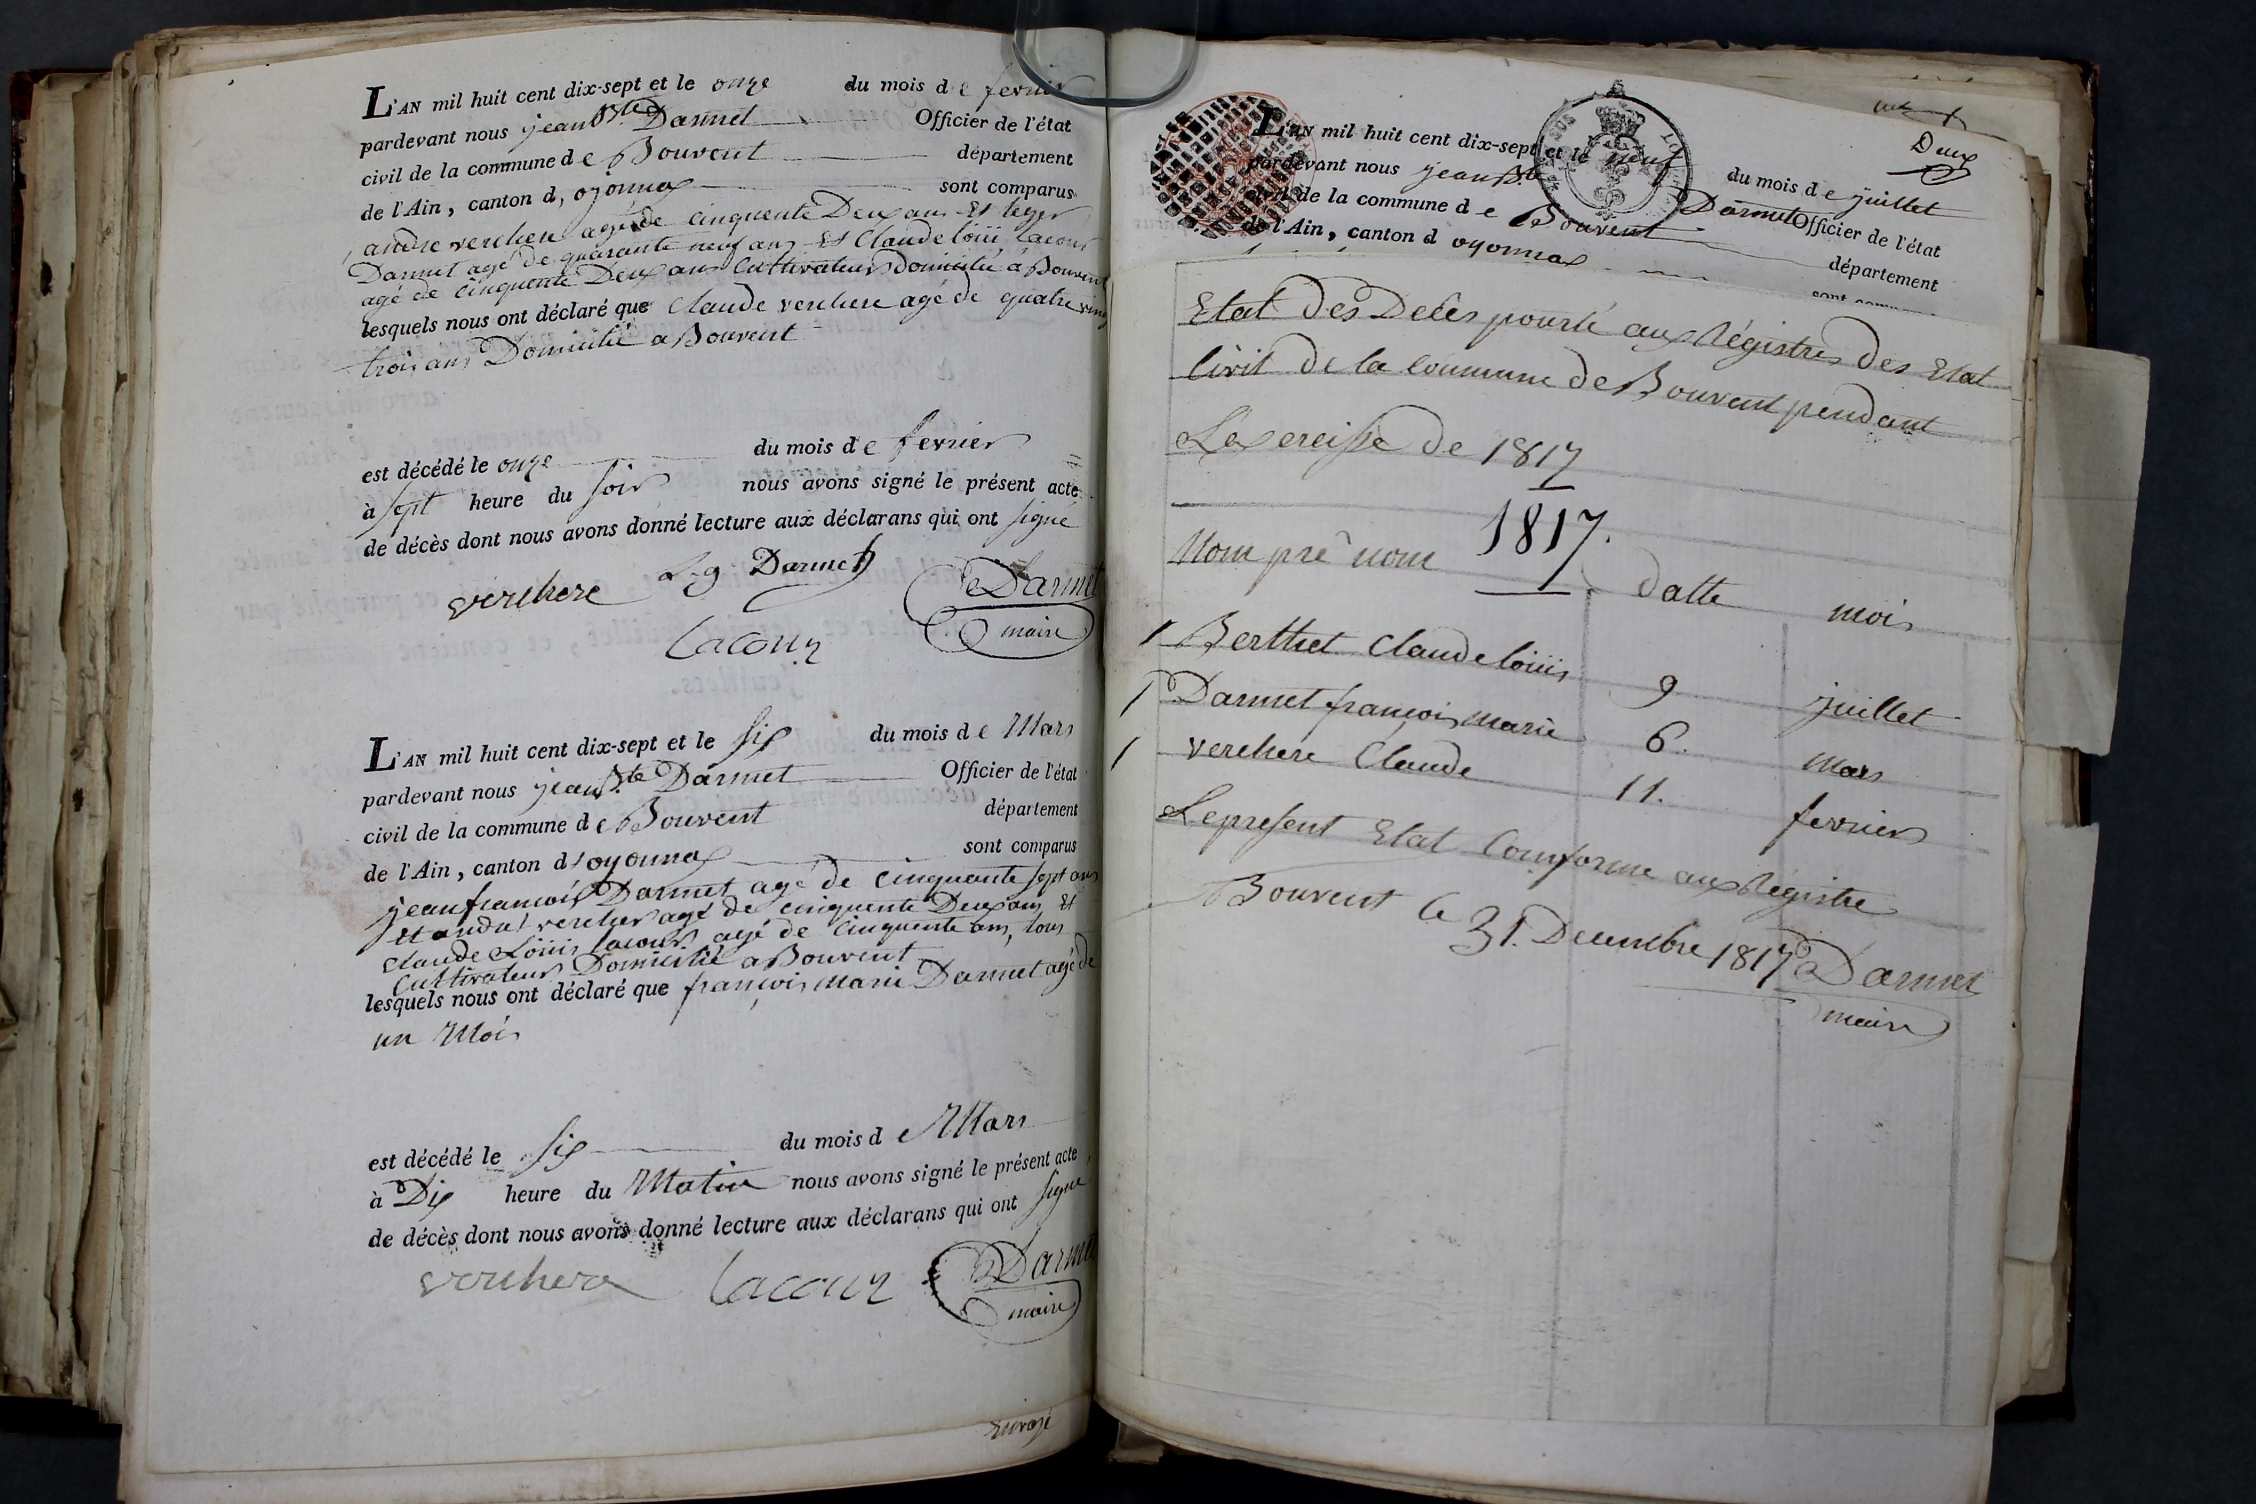 L'AN mil huit cent dix-sept et le onze du mois de fevrier
pardevant nous jean Bte Darmet Officier de l'état
civil de la commune de Bouvent département
de l'Ain, canton d, oyonnax sont comparus
andre verchere agé de cinquente Deux ans Et leger
Darmet agé de quarante neuf ans Et Claude loüis Lacour
agé de cinquente Deux ans Cultivateurs domicilié à Bouvent
lesquels nous ont déclaré que Claude verchere agé de quatre vingt
trois ans Domicilié a Bouvent
est décédé le onze du mois de fevrier
à sept heure du soir nous avons signé le présent acte
de décès dont nous avons donné lecture aux déclarans qui ont signé
verchere Lg Darmet Darmet
Lacour maire
L'AN mil huit cent dix-sept et le six du mois de Mars
pardevant nous jean Bte Darmet Officier de l'état
civil de la commune de Bouvent département
de l'Ain, canton d'oyonnax sont comparus
jean francois Darmet agé de cinquante sept ans
Et andré vercher agé de cinquente Deux ans Et
Claude Loüis lacour agé de cinquente ans, tous
Cultivateurs Domicilié a Bouvent
lesquels nous ont déclaré que françois Marie Darmet agé de
un Mois
est décédé le six du mois de Mars
à Dix heure du Matin nous avons signé le présent acte
de décès dont nous avons donné lecture aux déclarans qui ont signé
verchere Lacour Darmet
maire
Deux
L'AN mil huit cent dix-sept et le neuf du mois de juillet
pardevant nous jean Bte Darmet Officier de l'état
civil de la commune de Bouvent département
de l'Ain, canton d oyonnax
Etat Des Decès pourté aux Régistres Des Etat
Civil De la Commune De Bouvent pendant
L'exereisse de 1817
1817.
Nom pré nom datte mois
1 Berthet Claude loüis 9 juillet
1 Darmet françois marie 6. mars
1 verchere Claude 11. fevrier
Le present Etat Comforme aux Régistre
Bouvent le 31. Decembre 1817 Darmet
maire